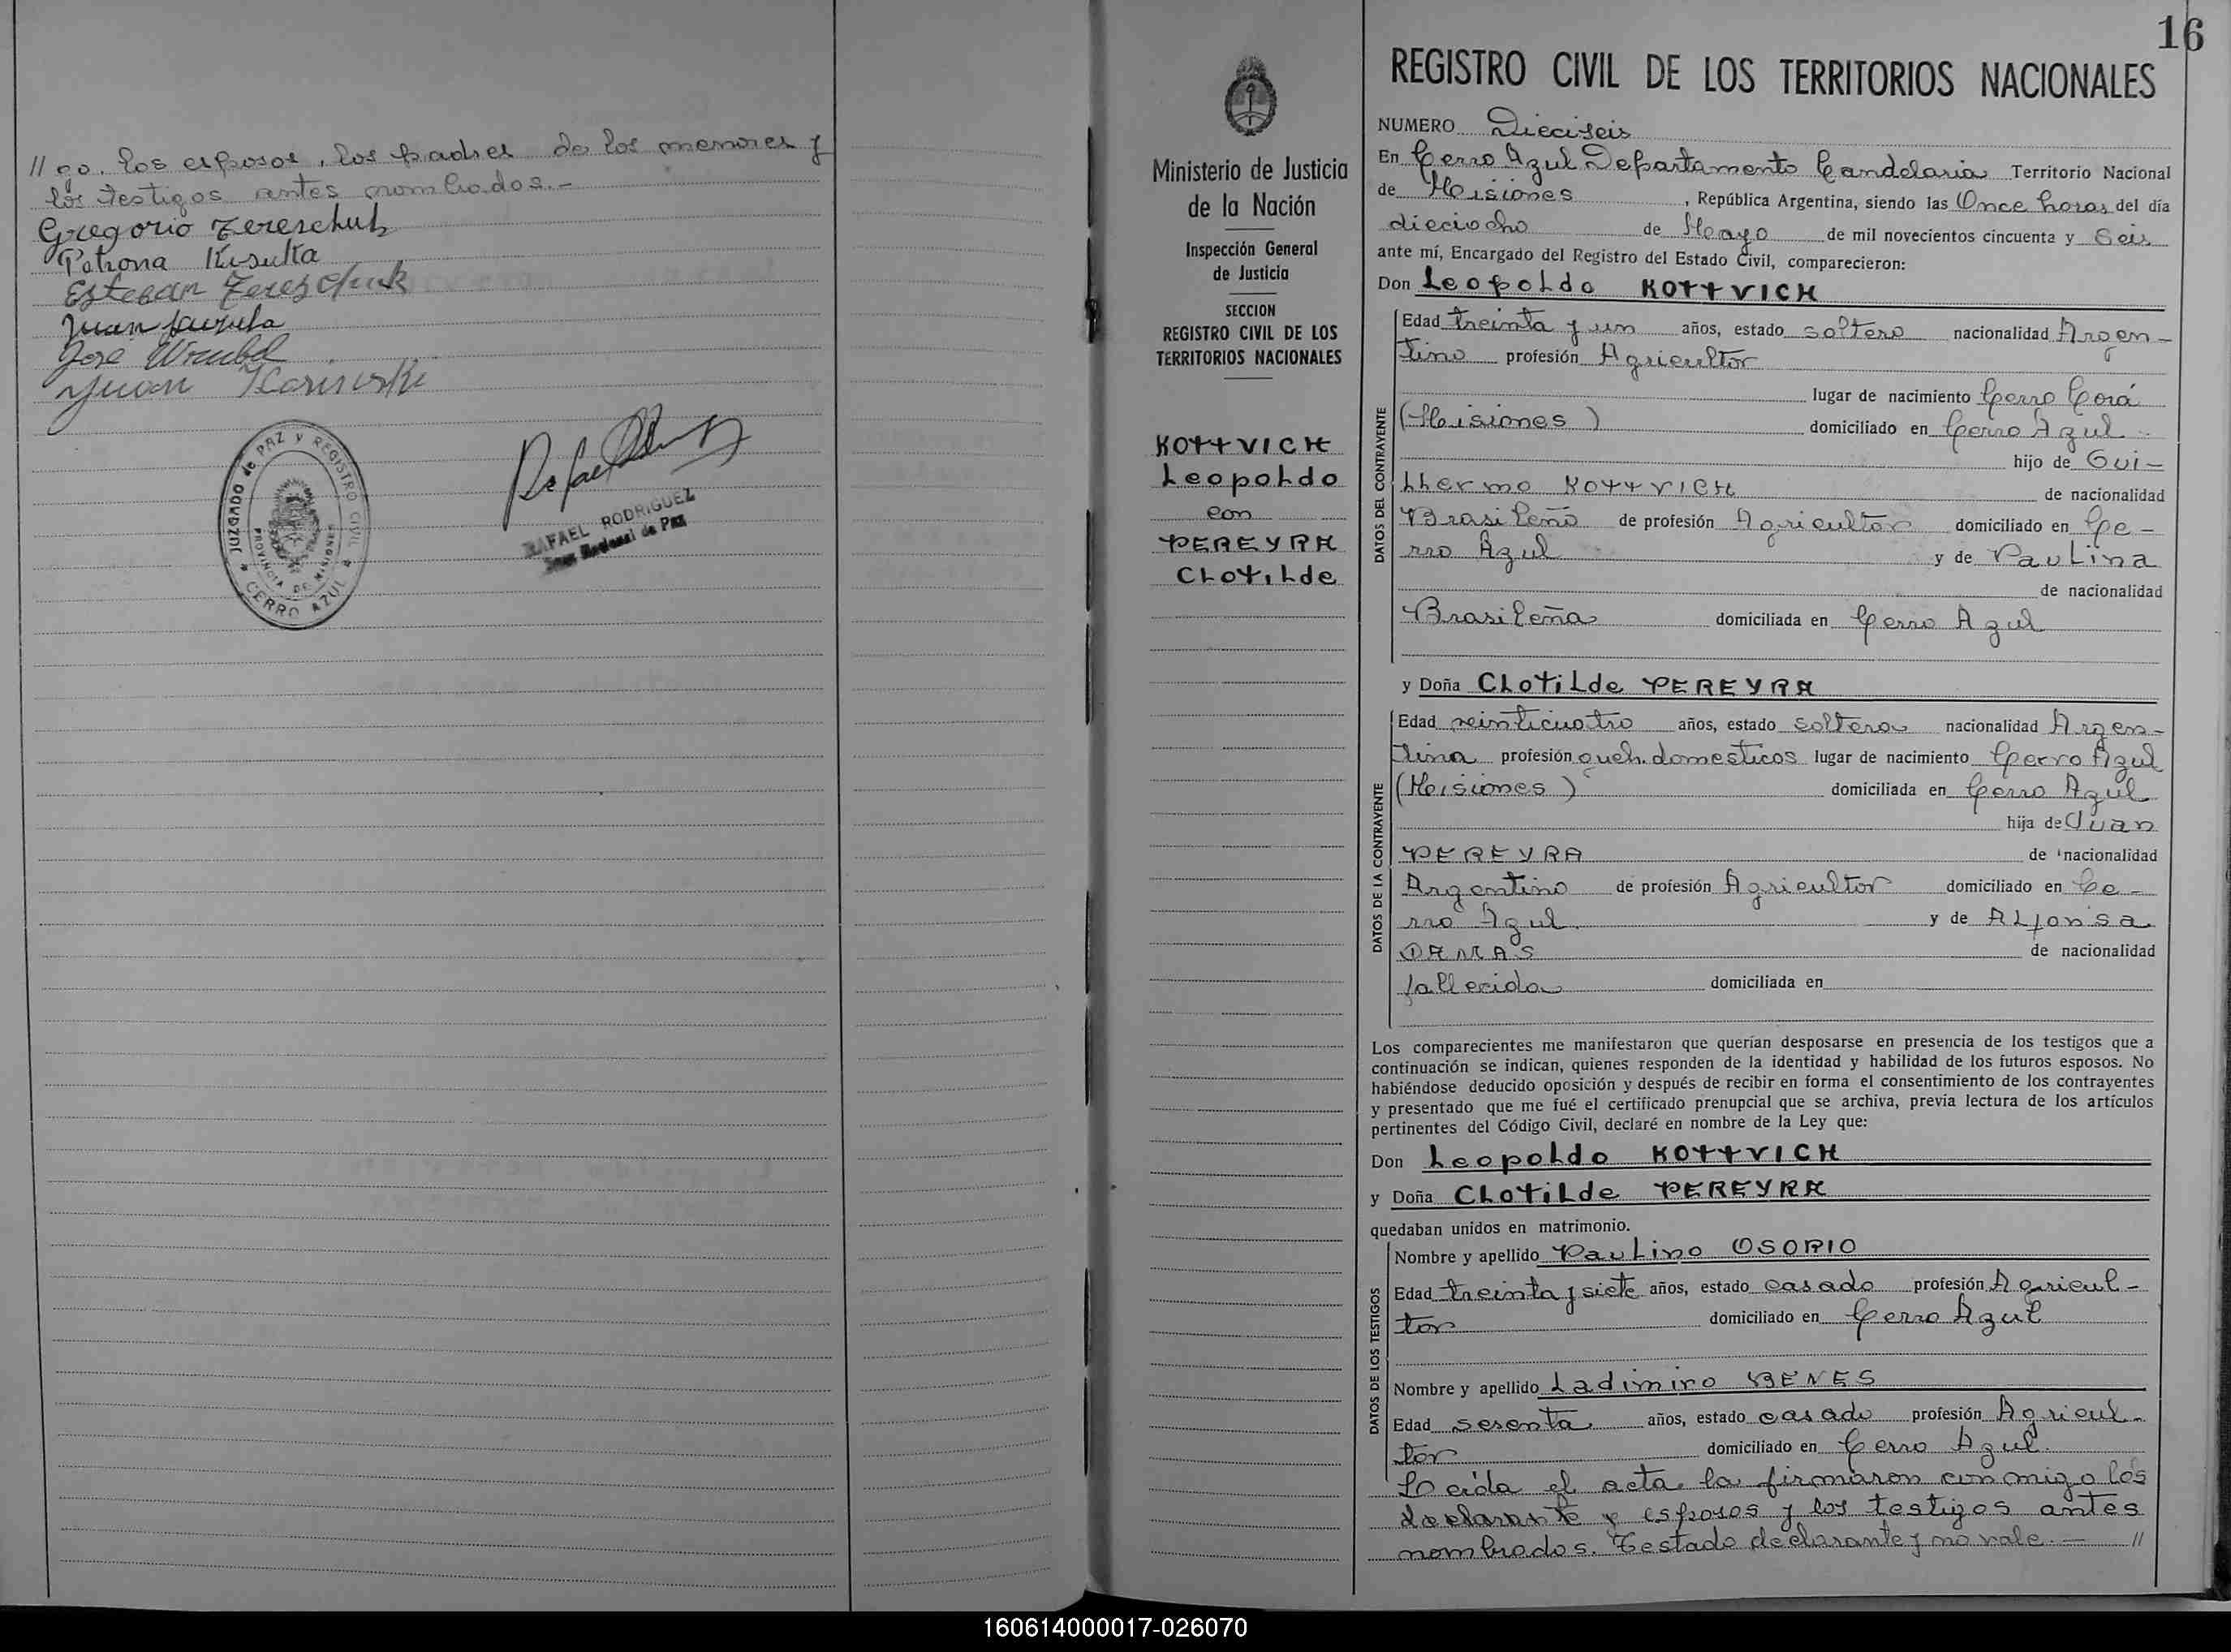 //go. los esposos, los padres de los menores y
los testigos antes nombrados.-
Gregorio Tereschuk
Petrona Kisulka
Esteban Tereschuk
Juan
Jose
Juan
JUZGADO de PAZ y REGISTRO CIVIL
PROVINCIA DE MISIONES
* CERRO AZUL *
RAFAEL RODRIGUEZ
Juez Nacional de Paz
Ministerio de Justicia
de la Nación
Inspección General
de Justicia
SECCION
REGISTRO CIVIL DE LOS
TERRITORIOS NACIONALES
KOTTVICH
Leopoldo
con
PEREYRA
Clotilde
16
REGISTRO CIVIL DE LOS TERRITORIOS NACIONALES
NUMERO Dieciseis
En Cerro Azul Departamento Candelaria Territorio Nacional
de Misiones, República Argentina, siendo las Once horas del día
dieciocho de Mayo de mil novecientos cincuenta y Seis
ante mí, Encargado del Registro del Estado Civil, comparecieron:
Don Leopoldo KOTTVICH
DATOS DEL CONTRAYENTE
Edad treinta y un años, estado soltero nacionalidad Argen-
tino profesión Agricultor
lugar de nacimiento Cerro Corá
(Misiones) domiciliado en Cerro Azul
hijo de Gui-
llermo KOTTVICH de nacionalidad
Brasileño de profesión Agricultor domiciliado en Ce-
rro Azul y de Paulina
de nacionalidad
Brasileña domiciliada en Cerro Azul
y Doña Clotilde PEREYRA
DATOS DE LA CONTRAYENTE
Edad veinticuatro años, estado soltera nacionalidad Argen-
tina profesión queh. domesticos lugar de nacimiento Cerro Azul
(Misiones) domiciliada en Cerro Azul
hija de Juan
PEREYRA de nacionalidad
Argentino de profesión Agricultor domiciliado en Ce-
rro Azul. y de Alfonsa
DAMAS de nacionalidad
fallecida domiciliada en
Los comparecientes me manifestaron que querían desposarse en presencia de los testigos que a
continuación se indican, quienes responden de la identidad y habilidad de los futuros esposos. No
habiéndose deducido oposición y después de recibir en forma el consentimiento de los contrayentes
y presentado que me fué el certificado prenupcial que se archiva, previa lectura de los artículos
pertinentes del Código Civil, declaré en nombre de la Ley que:
Don Leopoldo KOTTVICH
y Doña Clotilde PEREYRA
quedaban unidos en matrimonio.
DATOS DE LOS TESTIGOS
Nombre y apellido Paulino OSORIO
Edad treinta y siete años, estado casado profesión Agricul-
tor domiciliado en Cerro Azul
Nombre y apellido Ladimiro BENES
Edad sesenta años, estado casado profesión Agricul-
tor domiciliado en Cerro Azul.
Leída el acta la firmaron conmigo los
declarante y esposos y los testigos antes
nombrados. Testado declarante y no vale.- //
160614000017-026070